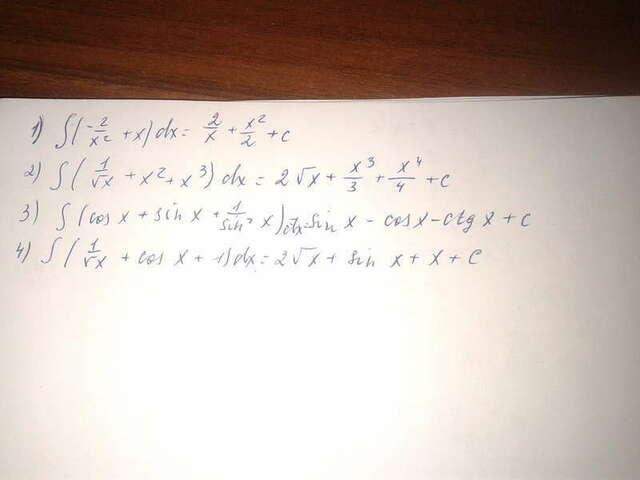 1) ∫(-2/x² + x)dx = 2/x + x²/2 + c
2) ∫(1/√x + x² + x³)dx = 2√x + x³/3 + x⁴/4 + c
3) ∫(cos x + sin x + 1/sin² x)dx = sin x - cos x - ctg x + c
4) ∫(1/√x + cos x + 1)dx = 2√x + sin x + x + c